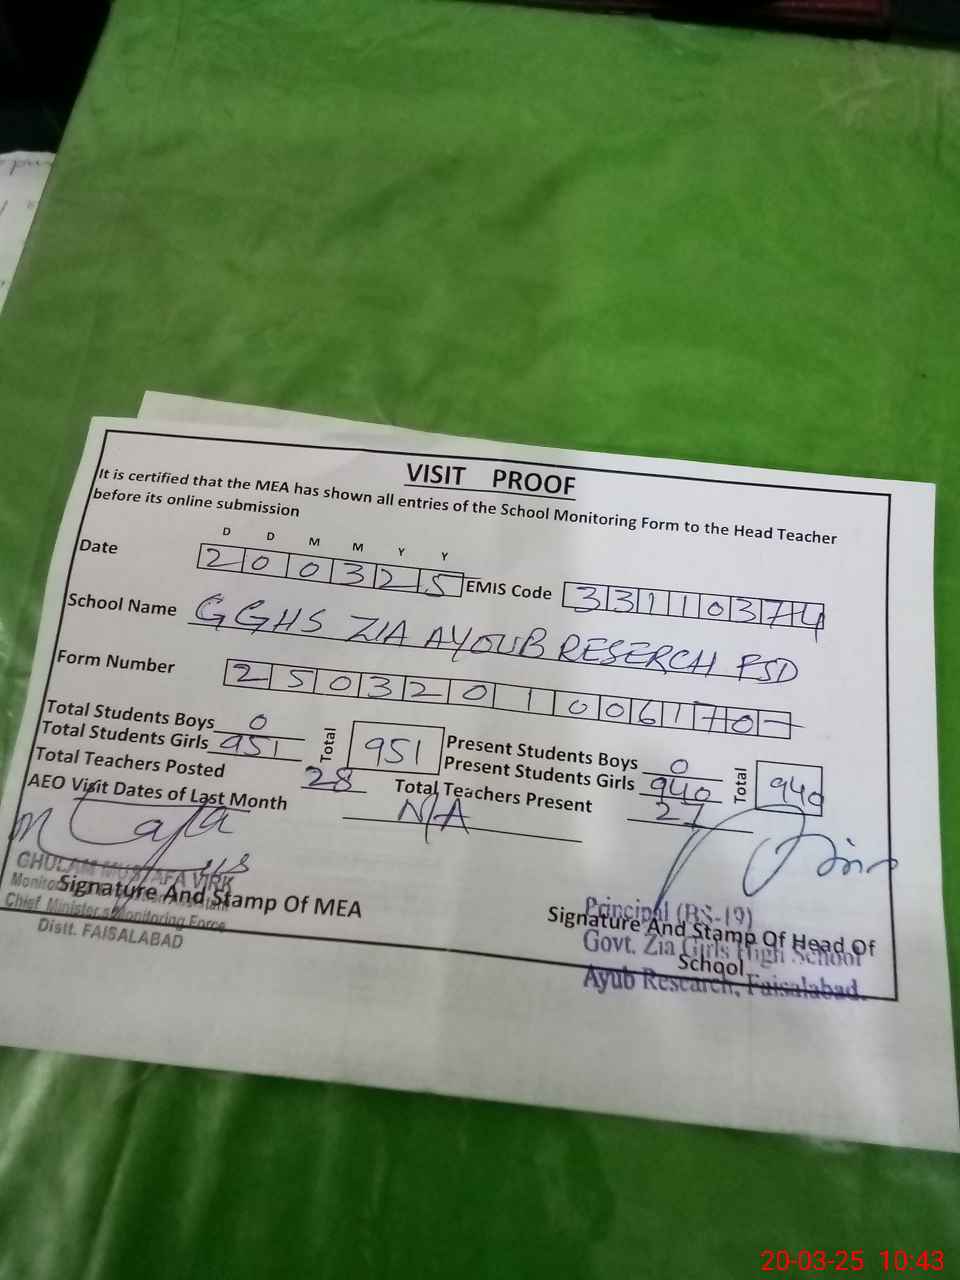 VISIT PROOF
It is certified that the MEA has shown all entries of the School Monitoring Form to the Head Teacher
before its online submission
D D M M Y Y
Date 200325 EMIS Code 33110374
School Name GGHS ZIA AYOUB RESERCH FSD
Form Number 2503201006170-
Total Students Boys 0 Total 951 Present Students Boys 0 Total 940
Total Students Girls 951 Present Students Girls 940
Total Teachers Posted 28 Total Teachers Present 27
AEO Visit Dates of Last Month N/A
GHULAM MUSTAFA VIRK
Signature And Stamp Of MEA
Chief Minister's Monitoring Force
Distt. FAISALABAD
Principal (BS-19)
Signature And Stamp Of Head Of
School
Govt. Zia Girls High School
Ayub Research, Faisalabad.
20-03-25 10:43